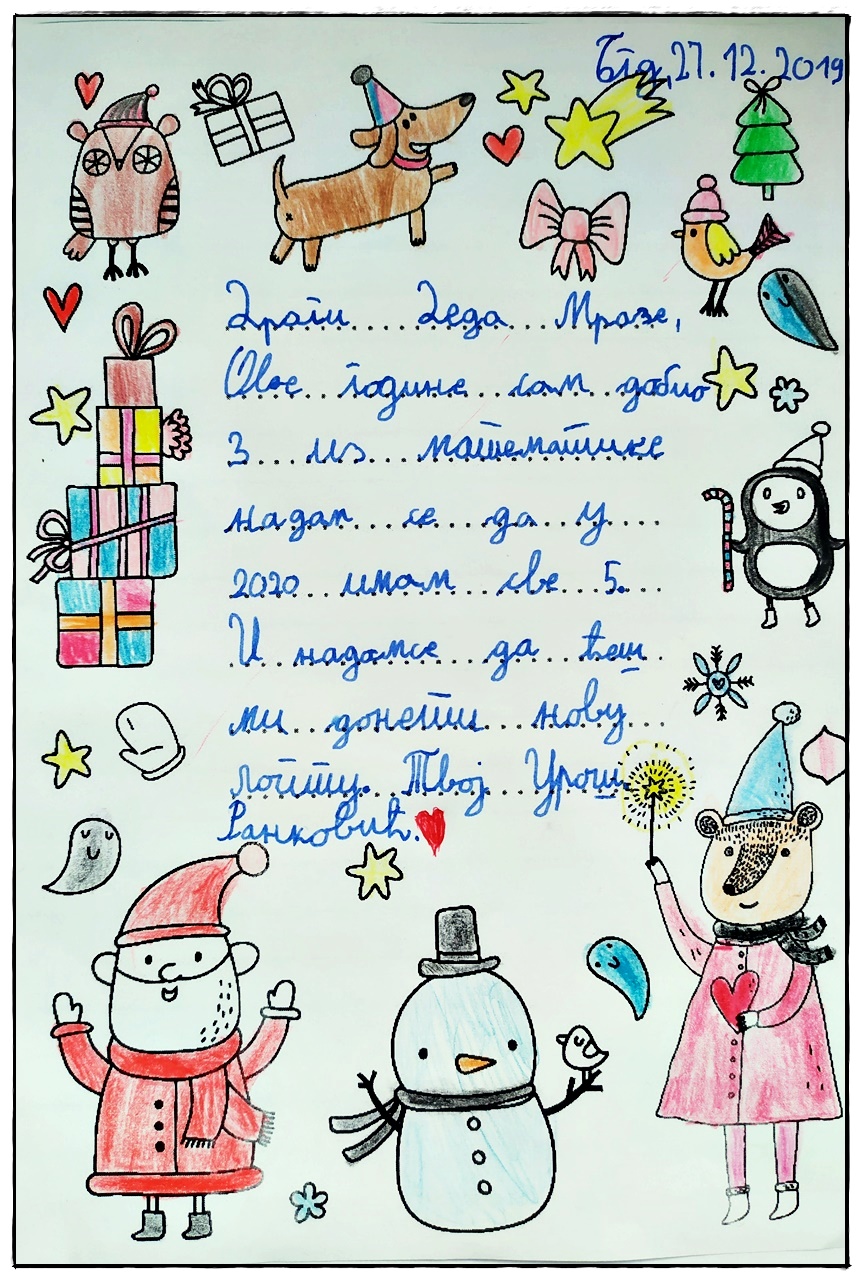 Бгд, 27.12.2019
Драги Деда Мразе,
Ове године сам добио
3 из математике
надам се да у
2020 имам све 5.
И надамсе да ћеш
ми донети нову
лопту. Твој Урош
Ранковић.